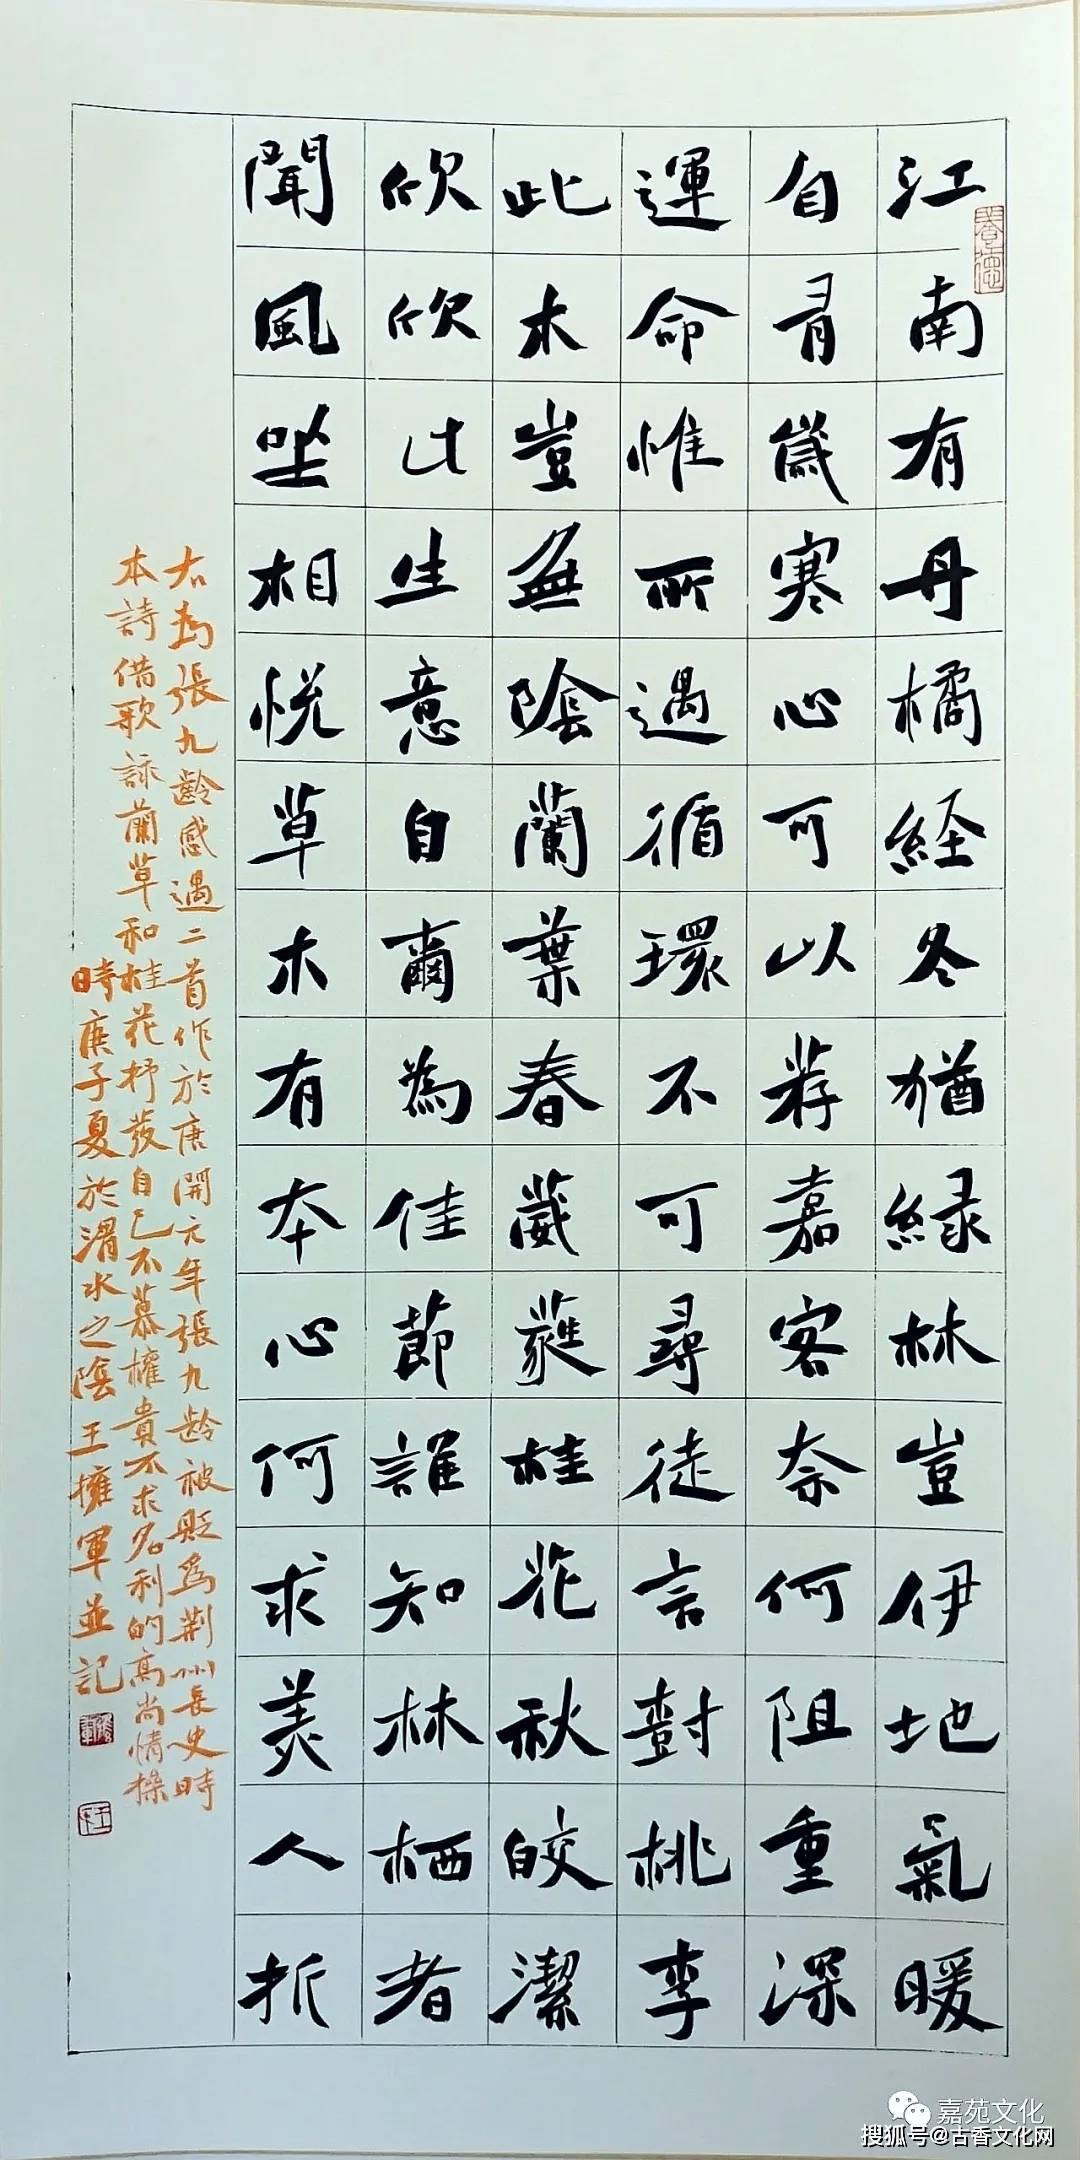 江南有丹橘経冬猶緑林豈伊地氣暖
自有歲寒心可以荐嘉客奈何阻重深
運命惟所遇循環不可尋徒言對桃李
此木豈無陰蘭葉春葳蕤桂花秋皎潔
欣欣此生意自爾為佳節誰知林栖者
聞風坐相悅草木有本心何求美人折
右為張九齡感遇二首作於唐開元年張九龄被貶為荆州長史時
本詩借歌詠蘭草和桂花抒發自己不慕權貴不求名利的高尚情操
時庚子夏於渭水之陰王擁軍並記
養德
嘉苑文化
搜狐号@古香文化网